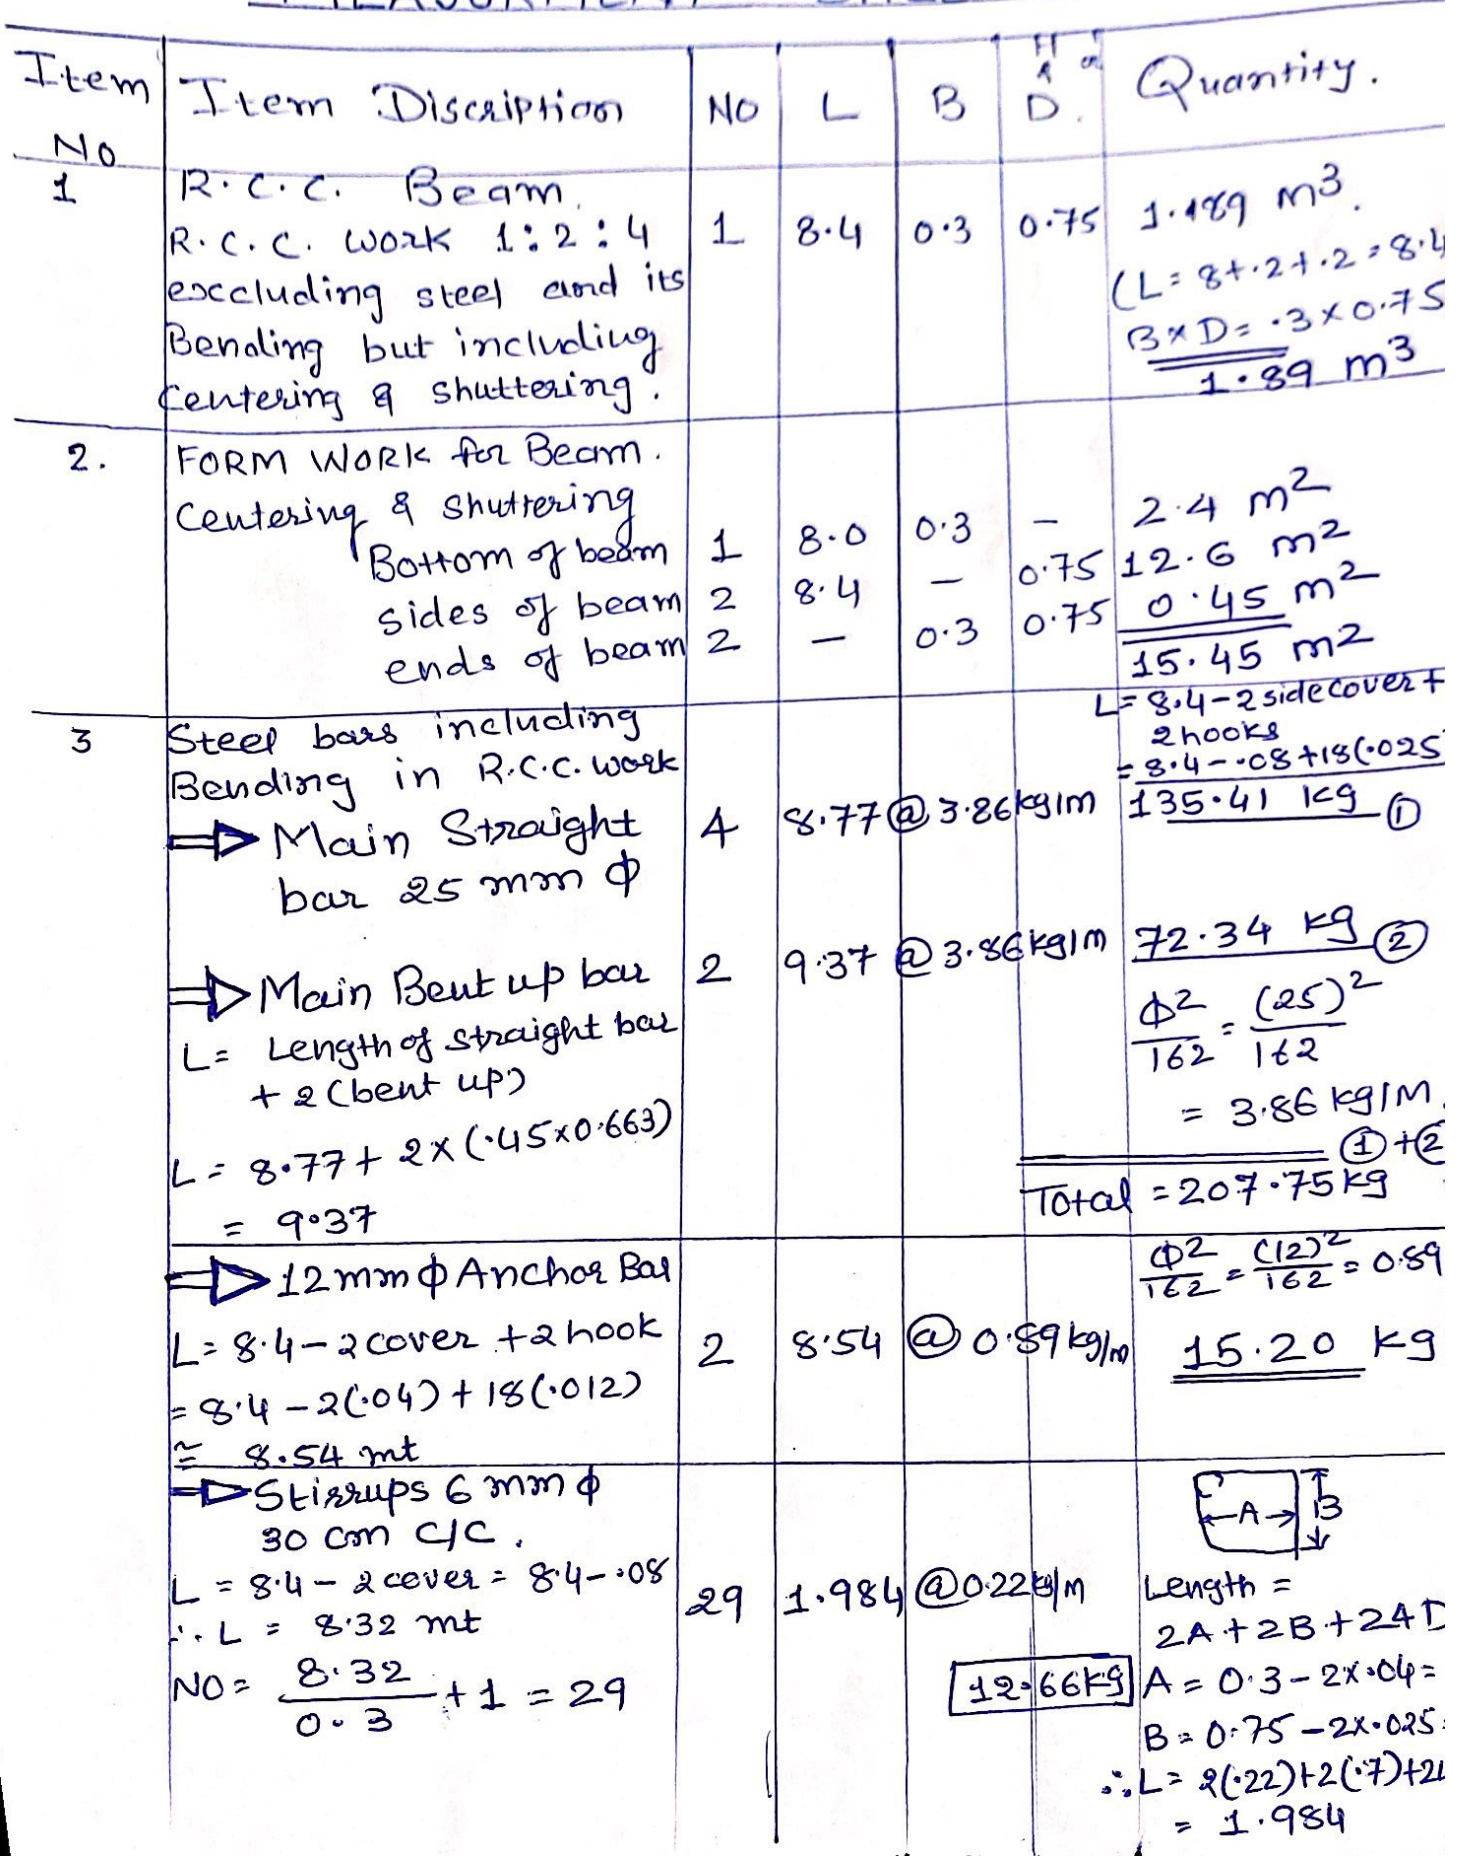 Item No
Item Discription
NO
L
B
H or D.
Quantity.
1
R.C.C. Beam.
R.C.C. Work 1:2:4
excluding steel and its
Bending but including
Centering & shuttering.
1
8.4
0.3
0.75
1.189 m3.
(L= 8+.2+.2=8.4
B×D= .3×0.75
1.89 m3
2.
FORM WORK for Beam.
Centering & shuttering
Bottom of beam 1 8.0 0.3 - 2.4 m2
sides of beam 2 8.4 - 0.75 12.6 m2
ends of beam 2 - 0.3 0.75 0.45 m2
15.45 m2
3
Steel bars including
Bending in R.C.C. work
L= 8.4-2 side cover +
2 hooks
= 8.4-.08+18(.025
⇒ Main Straight 4 8.77 @ 3.86 kg/m 135.41 kg ①
bar 25 mm ϕ
⇒ Main Bent up bar 2 9.37 @ 3.86 kg/m 72.34 kg ②
L= Length of straight bar
+ 2 (bent up)
L= 8.77+ 2×(.45×0.663)
= 9.37
ϕ2/162 = (25)2/162
= 3.86 kg/M.
①+②
Total = 207.75 kg
⇒ 12mm ϕ Anchor Bar
L= 8.4-2 cover +2 hook 2 8.54 @ 0.89 kg/m 15.20 kg
= 8.4-2(.04)+18(.012)
≅ 8.54 mt
ϕ2/162 = (12)2/162 = 0.89
⇒ Stirrups 6 mm ϕ
30 cm C/C.
L = 8.4-2 cover = 8.4-.08
∴ L = 8.32 mt
NO= 8.32/0.3 +1 = 29
29 1.984 @0.22 kg/m
12.66 kg
A
B
Length =
2A+2B+24D
A= 0.3-2×.04=
B= 0.75-2×.025=
∴ L= 2(.22)+2(.7)+24
= 1.984